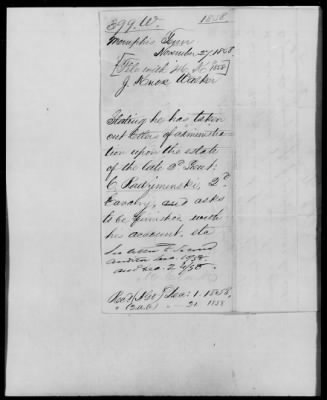 399. W. 1858
Memphis Tenn
November 27 1858
[File with 1858]
J. Knox Walker
Stating he has taken
out letters of administra-
tion upon the estate
of the late 2d Lieut:
C. Radziminski, 2d
Cavalry, and asks
to be furnished with
his account, etc
See letter to Second
Auditor Dec. 1858
and
Recd 1. 1858.
21. 1858